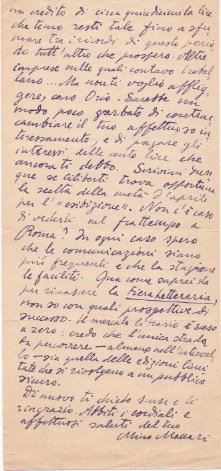 un credito di circa quindicimila lire
che temo resti tale fino a sfu
mare tra i ricordi di questo perio
do tutt'altro che prospero. Altre
imprese sulle quali contavo trabal
lano... Ma non ti voglio afflig
gere, caro Osio. Sarebbe un
modo poco garbato di contrac
cambiare il tuo affettuoso in
teressamento, e di pagare gli
interessi delle auto lire che
ancora ti debbo. Scrivimi dun
que se Ciliberti trova opportuna
la scelta della metà d'aprile
per l'"esibizione". Non c'è caso
di vederti nel frattempo a
Roma? In ogni caso spero
che le comunicazioni siano
più frequenti e che la stagione
le faciliti. Qua come saprai sta
per rinascere la Fiera Letteraria,
non so con quali prospettive di
successo. Il mercato librario è sceso
a zero: credo che l'unica strada
da percorrere – almeno nell'interval
lo – sia quella delle edizioni limi
tate che si rivolgono a un pubblico
sicuro.
Di nuovo ti chiedo scusa e ti
ringrazio. Abbiti i cordiali e
affettuosi saluti del tuo
Mino Maccari